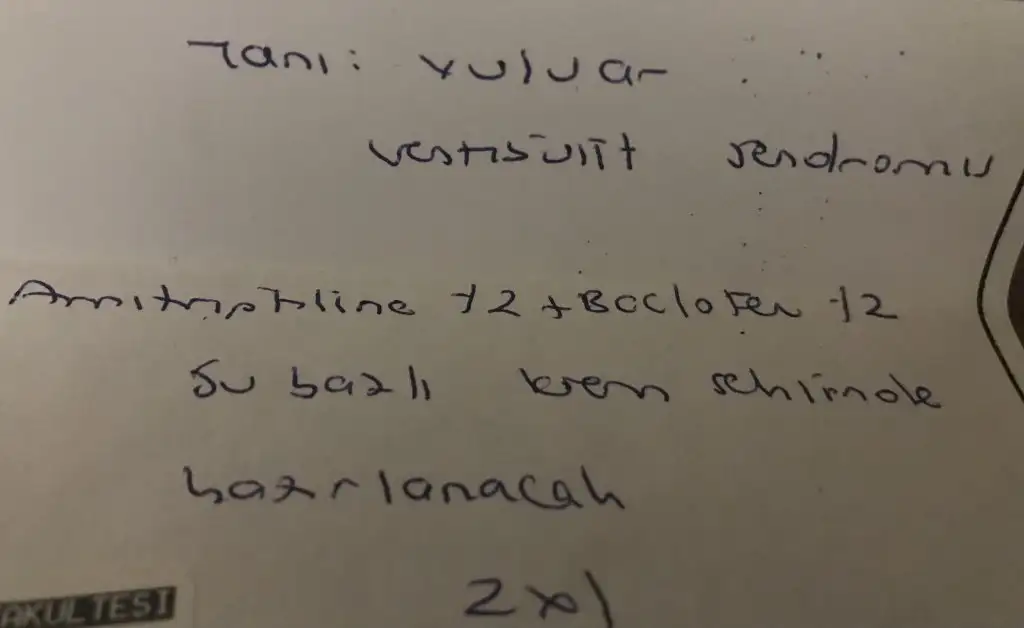 Tanı: vulvar
vestibülit sendromu
Amitriptiline %2 + Baclofen %2
Su bazlı krem şeklinde
hazırlanacak
2x1
AKULTESI